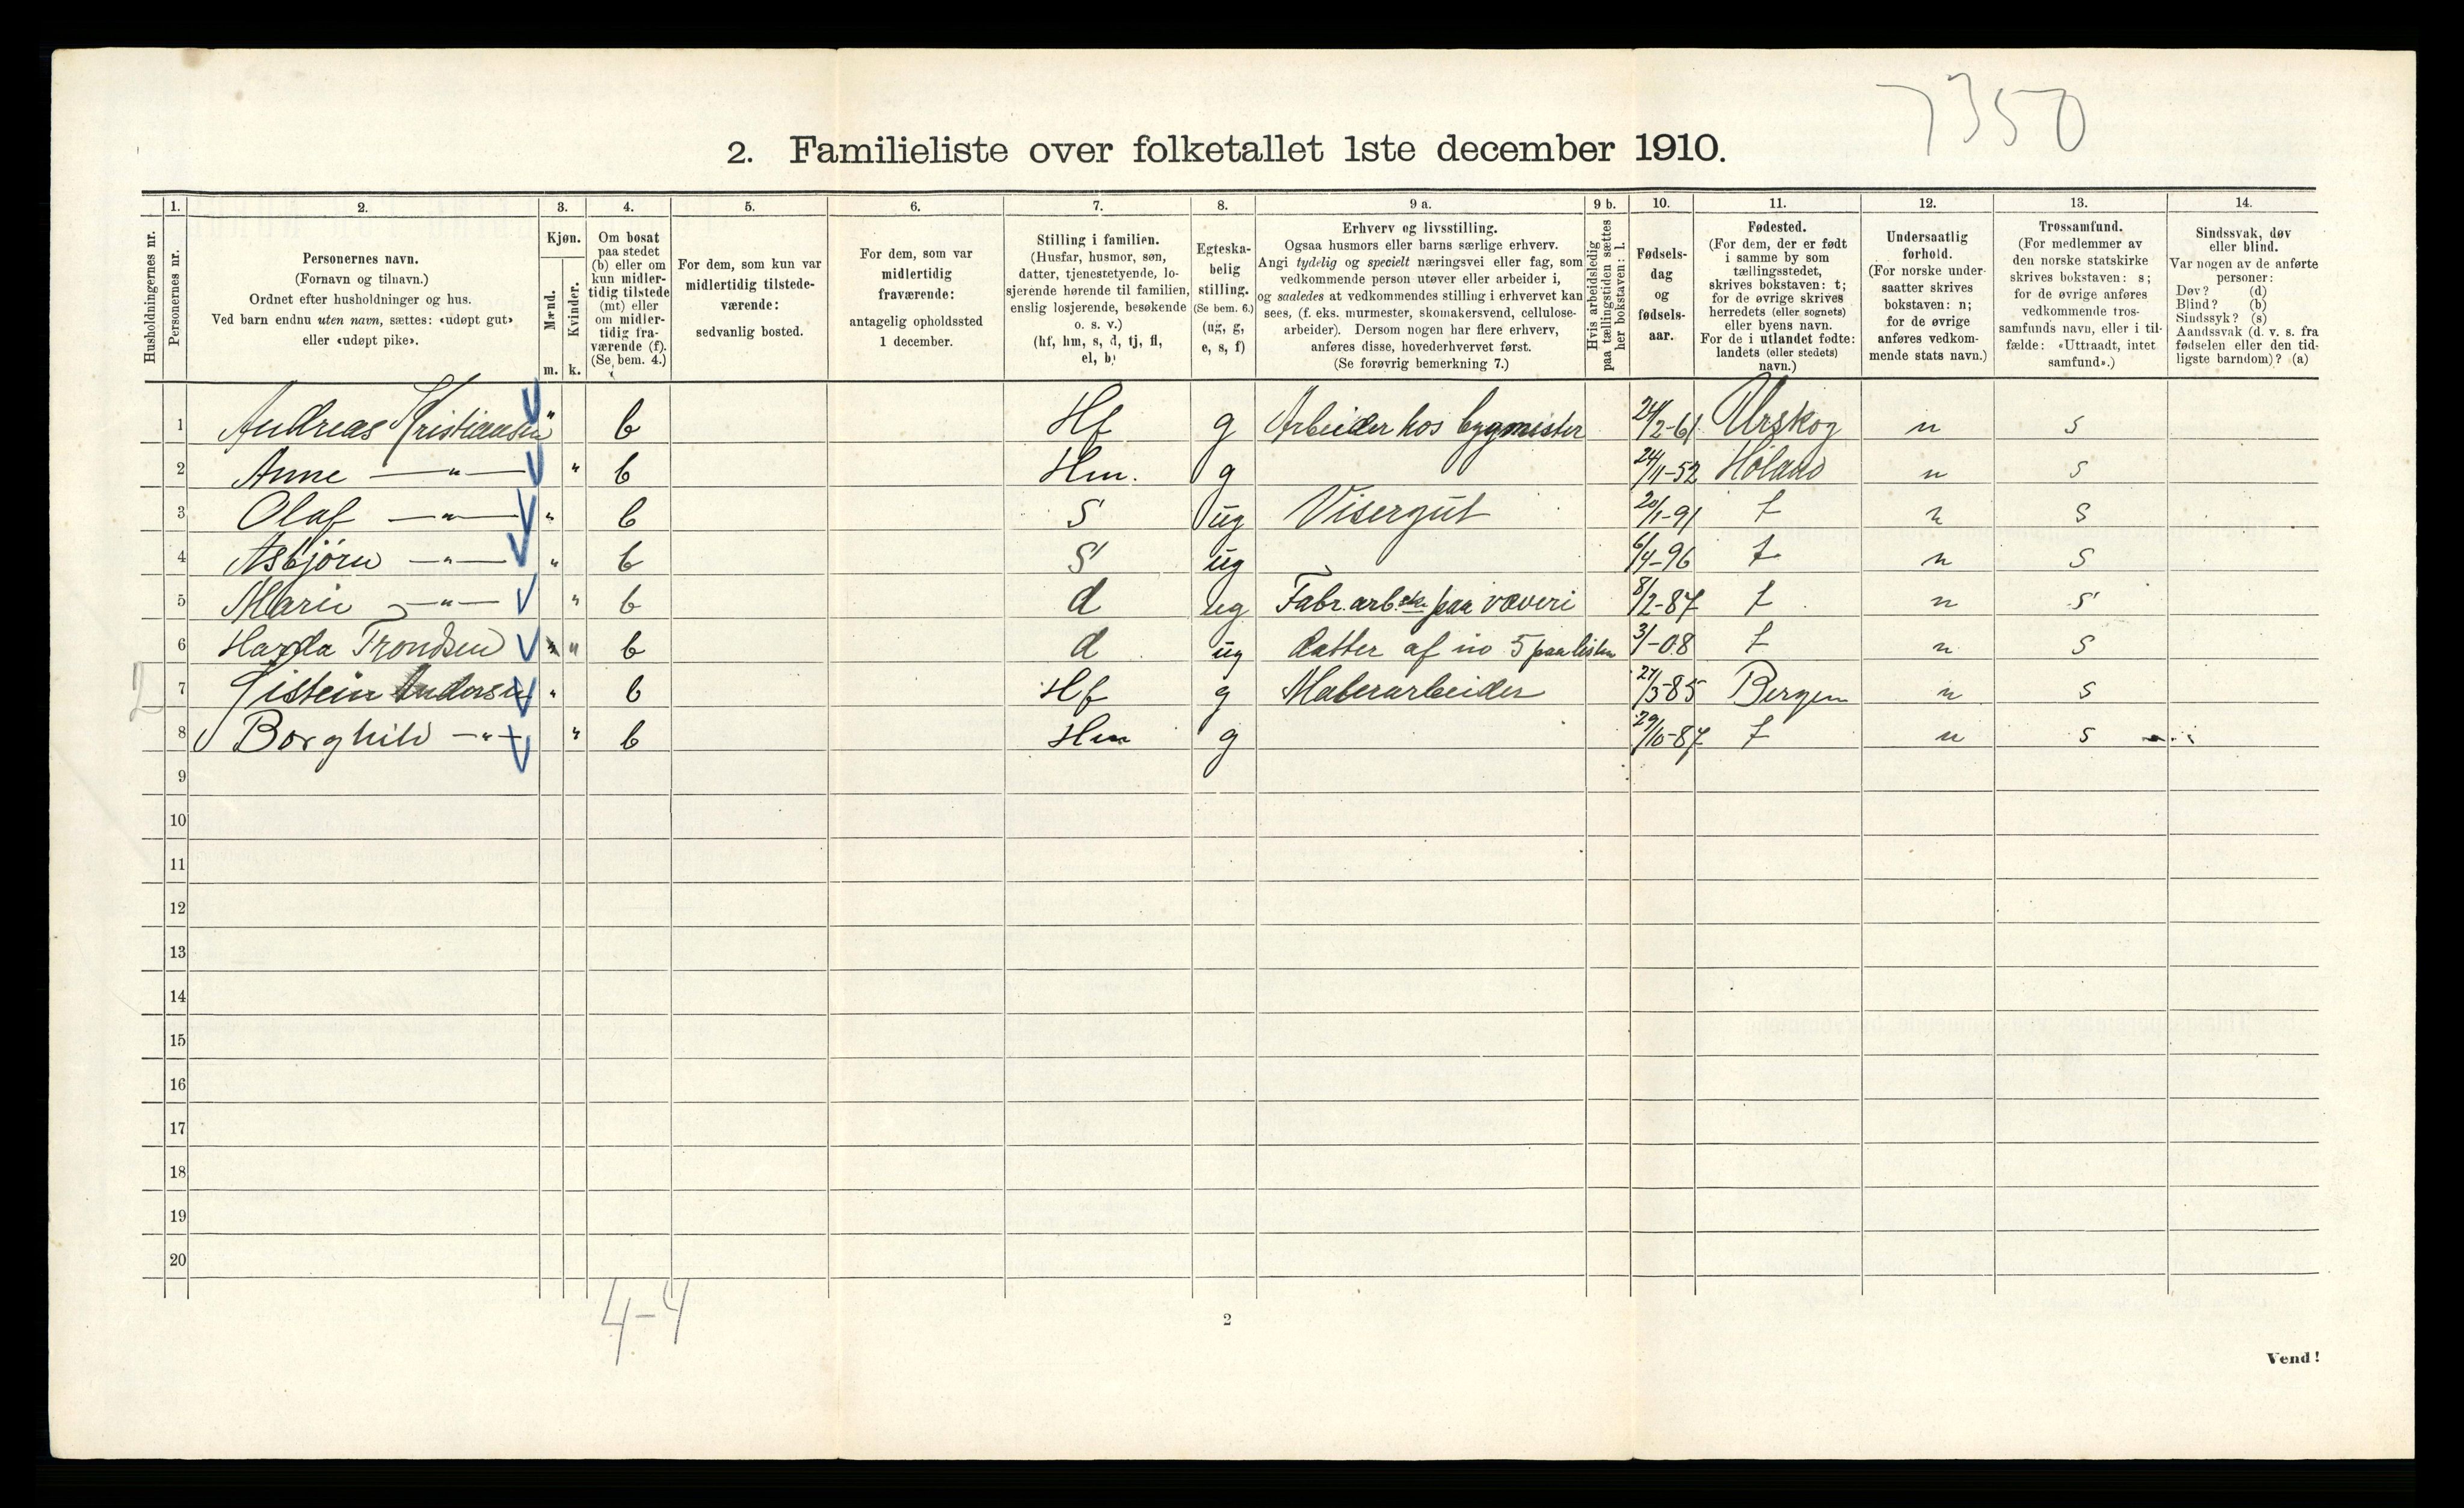 7350
2. Familieliste over folketallet 1ste december 1910.
Husholdningernes nr.
1. Personernes nr.
2. Personernes navn.
(Fornavn og tilnavn.)
Ordnet efter husholdninger og hus.
Ved barn endnu uten navn, sættes: «udøpt gut»
eller «udøpt pike».
3. Kjøn.
Mænd. m.
Kvinder. k.
4. Om bosat
paa stedet
(b) eller om
kun midler-
tidig tilstede
(mt) eller
om midler-
tidig fra-
værende (f).
(Se bem. 4.)
5. For dem, som kun var
midlertidig tilstede-
værende:
sedvanlig bosted.
6. For dem, som var
midlertidig
fraværende:
antagelig opholdssted
1 december.
7. Stilling i familien.
(Husfar, husmor, søn,
datter, tjenestetyende, lo-
sjerende hørende til familien,
enslig losjerende, besøkende
o. s. v.)
(hf, hm, s, d, tj, fl,
el, b)
8. Egteska-
belig
stilling.
(Se bem. 6.)
(ug, g,
e, s, f)
9 a. Erhverv og livsstilling.
Ogsaa husmors eller barns særlige erhverv.
Angi tydelig og specielt næringsvei eller fag, som
vedkommende person utøver eller arbeider i,
og saaledes at vedkommendes stilling i erhvervet kan
sees, (f. eks. murmester, skomakersvend, cellulose-
arbeider). Dersom nogen har flere erhverv,
anføres disse, hovederhvervet først.
(Se forøvrig bemerkning 7.)
9 b. Hvis arbeidsledig
paa tællingstiden sættes
her bokstaven: l.
10. Fødsels-
dag
og
fødsels-
aar.
11. Fødested.
(For dem, der er født
i samme by som
tællingsstedet,
skrives bokstaven: t;
for de øvrige skrives
herredets (eller sognets)
eller byens navn.
For de i utlandet fødte:
landets (eller stedets)
navn.)
12. Undersaatlig
forhold.
(For norske under-
saatter skrives
bokstaven: n;
for de øvrige
anføres vedkom-
mende stats navn.)
13. Trossamfund.
(For medlemmer av
den norske statskirke
skrives bokstaven: s;
for de øvrige anføres
vedkommende tros-
samfunds navn, eller i til-
fælde: «Uttraadt, intet
samfund».)
14. Sindssvak, døv
eller blind.
Var nogen av de anførte
personer:
Døv? (d)
Blind? (b)
Sindssyk? (s)
Aandssvak (d. v. s. fra
fødselen eller den tid-
ligste barndom)? (a)
1 Andreas Kristiansen " b Hf g Arbeider hos bygmester 24/2-61 Urskog n s
2 Anne —"— " b Hm. g 24/11-52 Høland n s
3 Olaf —"— " b S ug Visergut 20/1-91 t n s
4 Asbjörn —"— " b S ug 6/4-96 t n s
5 Marie —"— " b d ug Fabr. arb.ske paa væveri 8/2-87 t n s
6 Harda Trondsen " b d ug datter af no 5 paa listen 3/-08 t n s
2 7 Øistein Andersen " b Hf g Malerarbeider 27/3-85 Bergen n s
8 Borghild —"— " b Hm g 29/10-87 t n s
9
10
11
12
13
14
15
16
17
18
19
20
4-4
2
Vend!